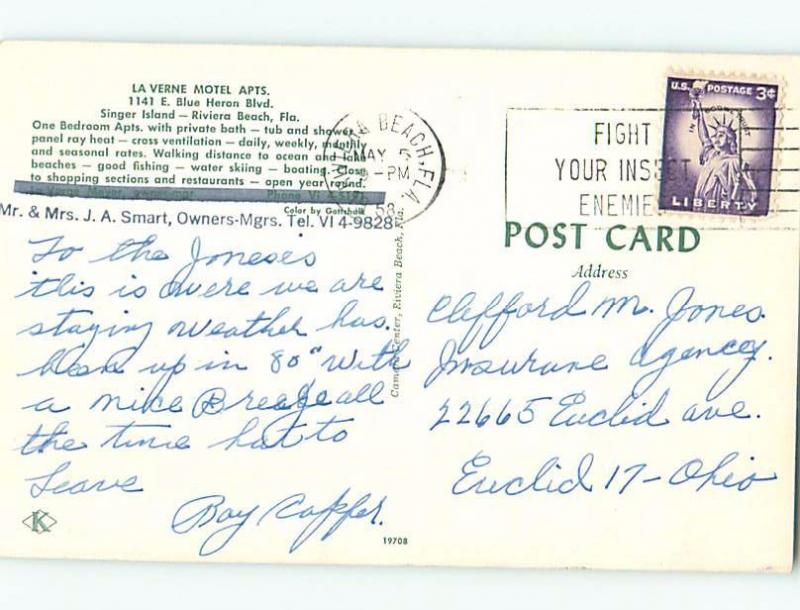 LA VERNE MOTEL APTS.
1141 E. Blue Heron Blvd.
Singer Island — Riviera Beach, Fla.
One Bedroom Apts. with private bath — tub and shower
panel ray heat — cross ventilation — daily, weekly, monthly
and seasonal rates. Walking distance to ocean and lake
beaches — good fishing — water skiing — boating. Close
to shopping sections and restaurants — open year round.
Color by
Mr. & Mrs. J. A. Smart, Owners-Mgrs. Tel. VI 4-9828
To the Joneses
this is were we are
staying Weather has
been up in 80" With
a nice Breaze all
the time hat to
Leave
Ray
K
19708
Center, Riviera Beach, Fla.
BEACH, FLA
MAY 5
PM
58
FIGHT
YOUR INSECT
ENEMIE
U.S. POSTAGE 3¢
IN GOD WE TRUST
LIBERTY
POST CARD
Address
Clifford M. Jones
Insurane Agencey.
22665 Euclid ave.
Euclid 17- Ohio